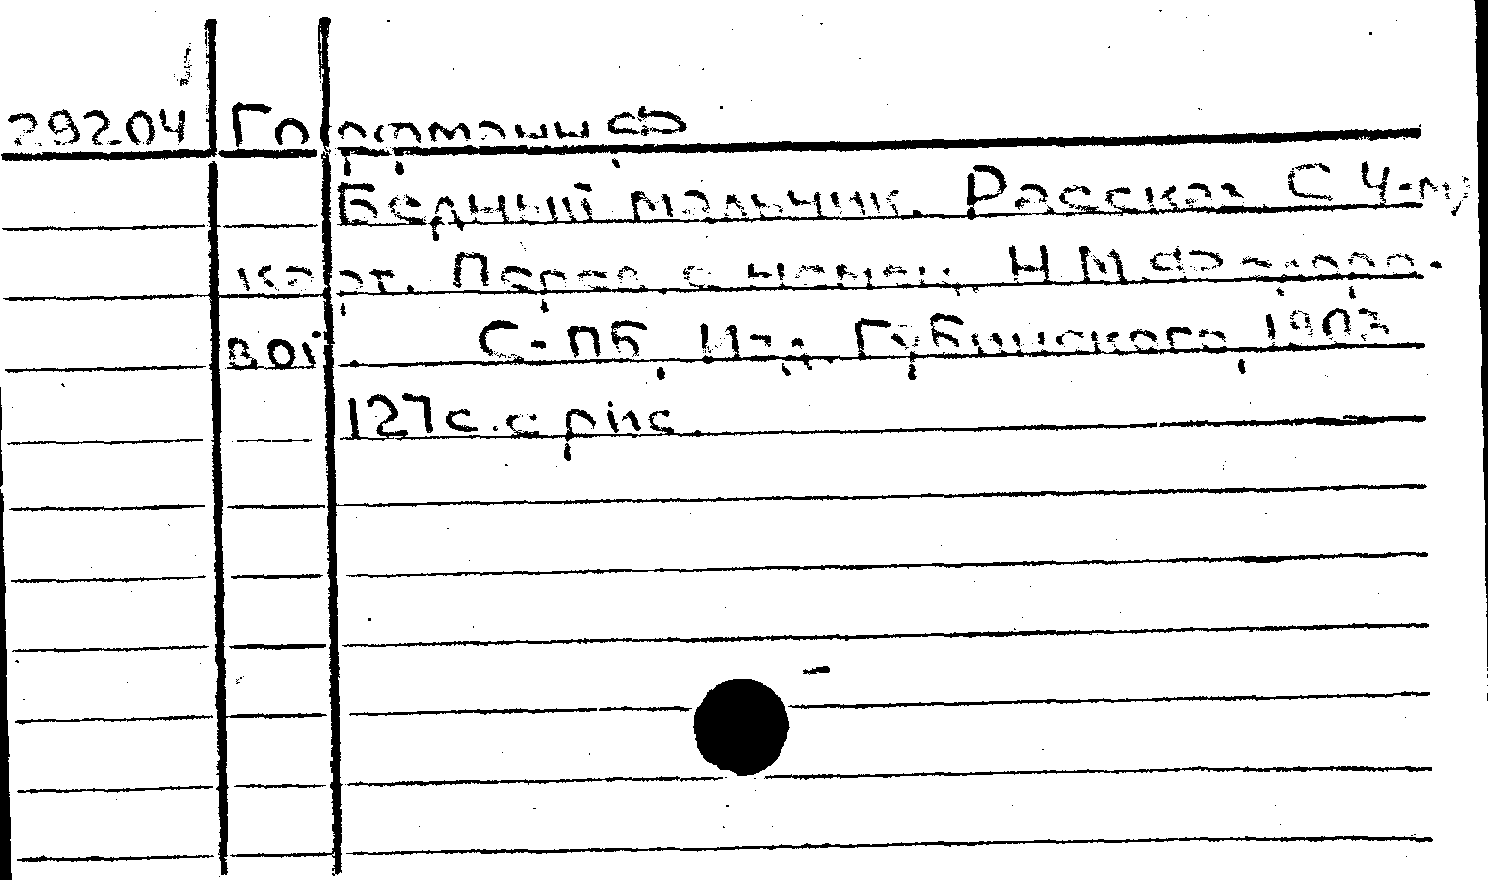 29204 Горфманн Ф
Бедный мальчик. Рассказ. С 4-мя
карт. Перев. с немец. Н. М. Федоро-
вой. С-ПБ, Изд. Губинского, 1903
127 с. с рис.